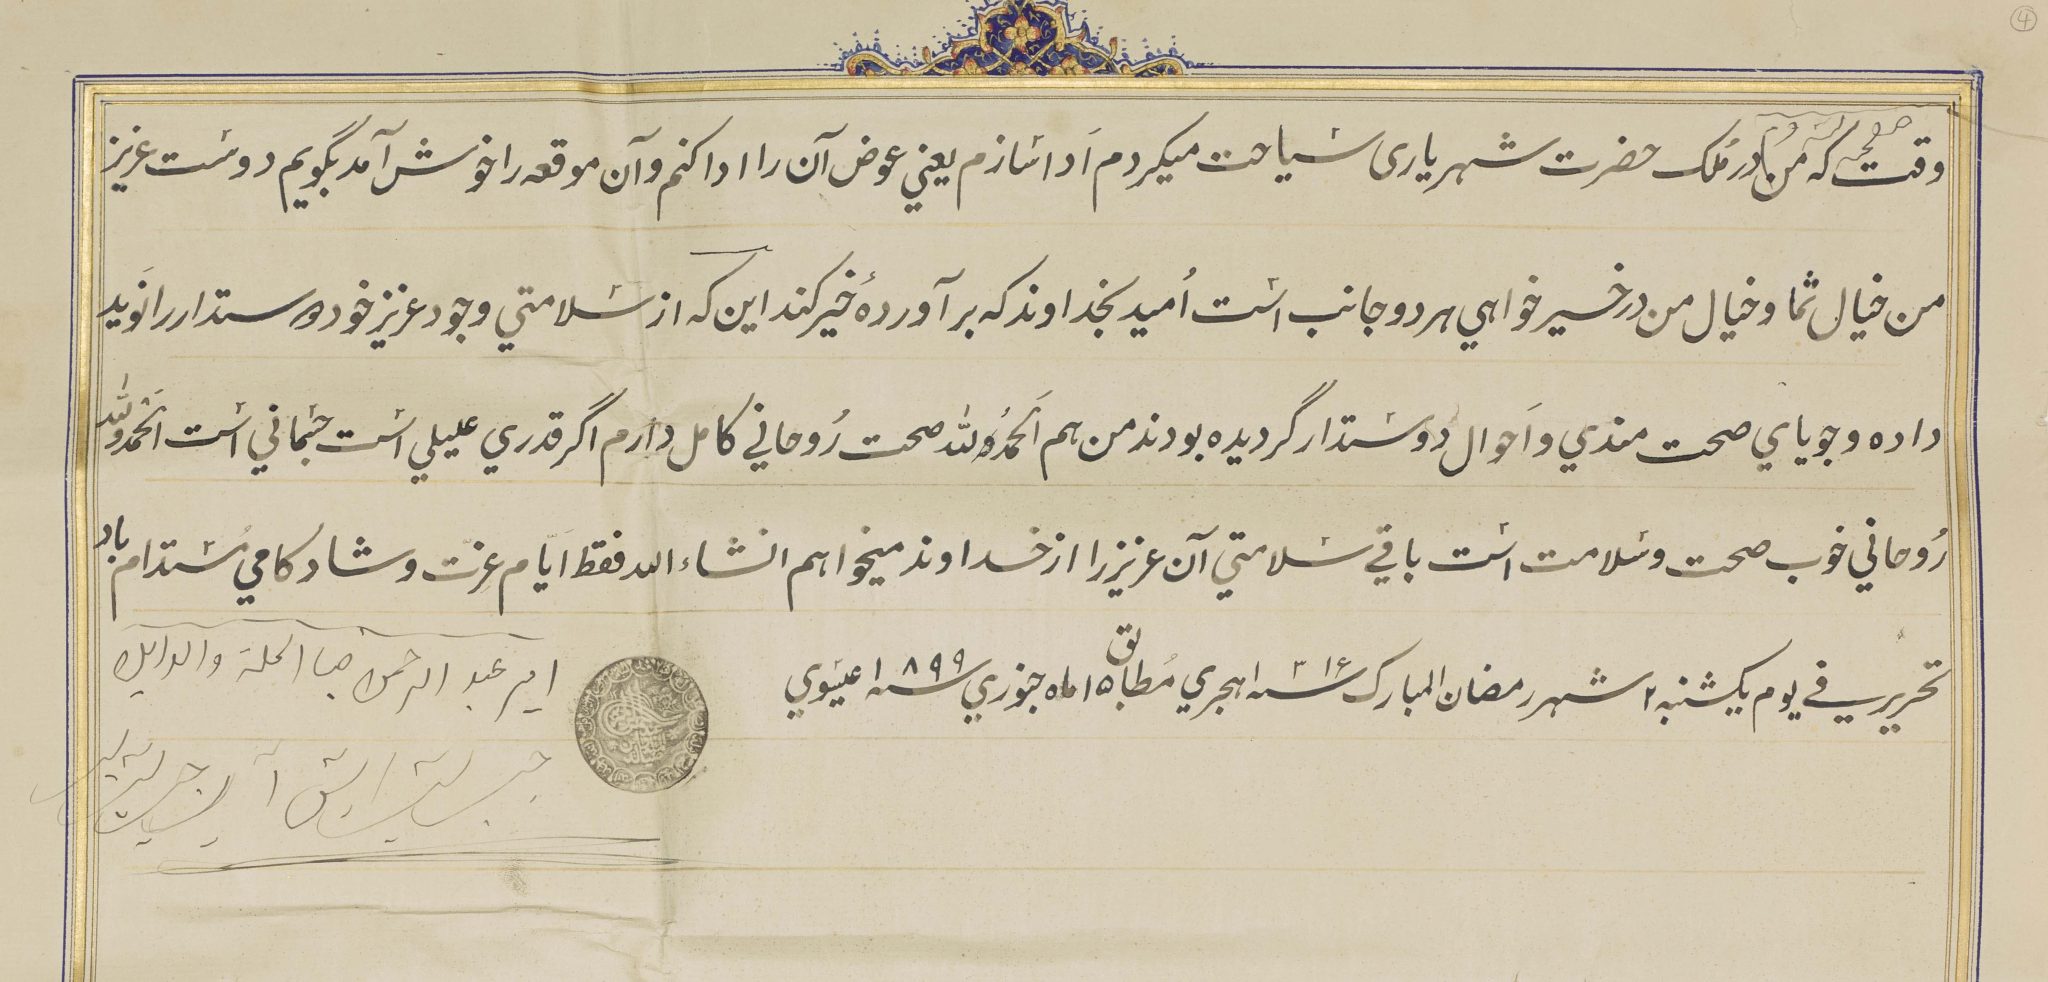 ④
صفحه
وقت که من در مُلک حضرت شهریاری سیاحت میکردم اَدا سازم یعنی عوض آن را ادا کنم و آن موقعه را خوش آمد بگویم دوست عزیز
من خیال شما و خیال من در خیر خواهی هر دو جانب است اُمید بخداوند که برآوردهٔ خیر کند این که از سلامتی وجود عزیز خود دوستدار را نَوید
داده و جویای صحت مندی و اَحوال دوستدار گردیده بودند من هم اَلحمدُ لله صحت رُوحانی کامل دارم اگر قدری علیلی است جسمانی است اَلحمدُ لله
رُوحانی خوب صحت و سلامت است باقی سلامتی آن عزیز را از خداوند میخواهم انشاء الله فقط ایّام عزّت و شادکامی مُستدام باد
تحریر فی یوم یکشنبه ۲ شهر رمضان المبارک سنه ۱۳۱۶ هجری مُطابق ۱۵ ماه جنوری سنه ۱۸۹۹ عیسوی
امیر عبد الرحمن ضیا المله والدین